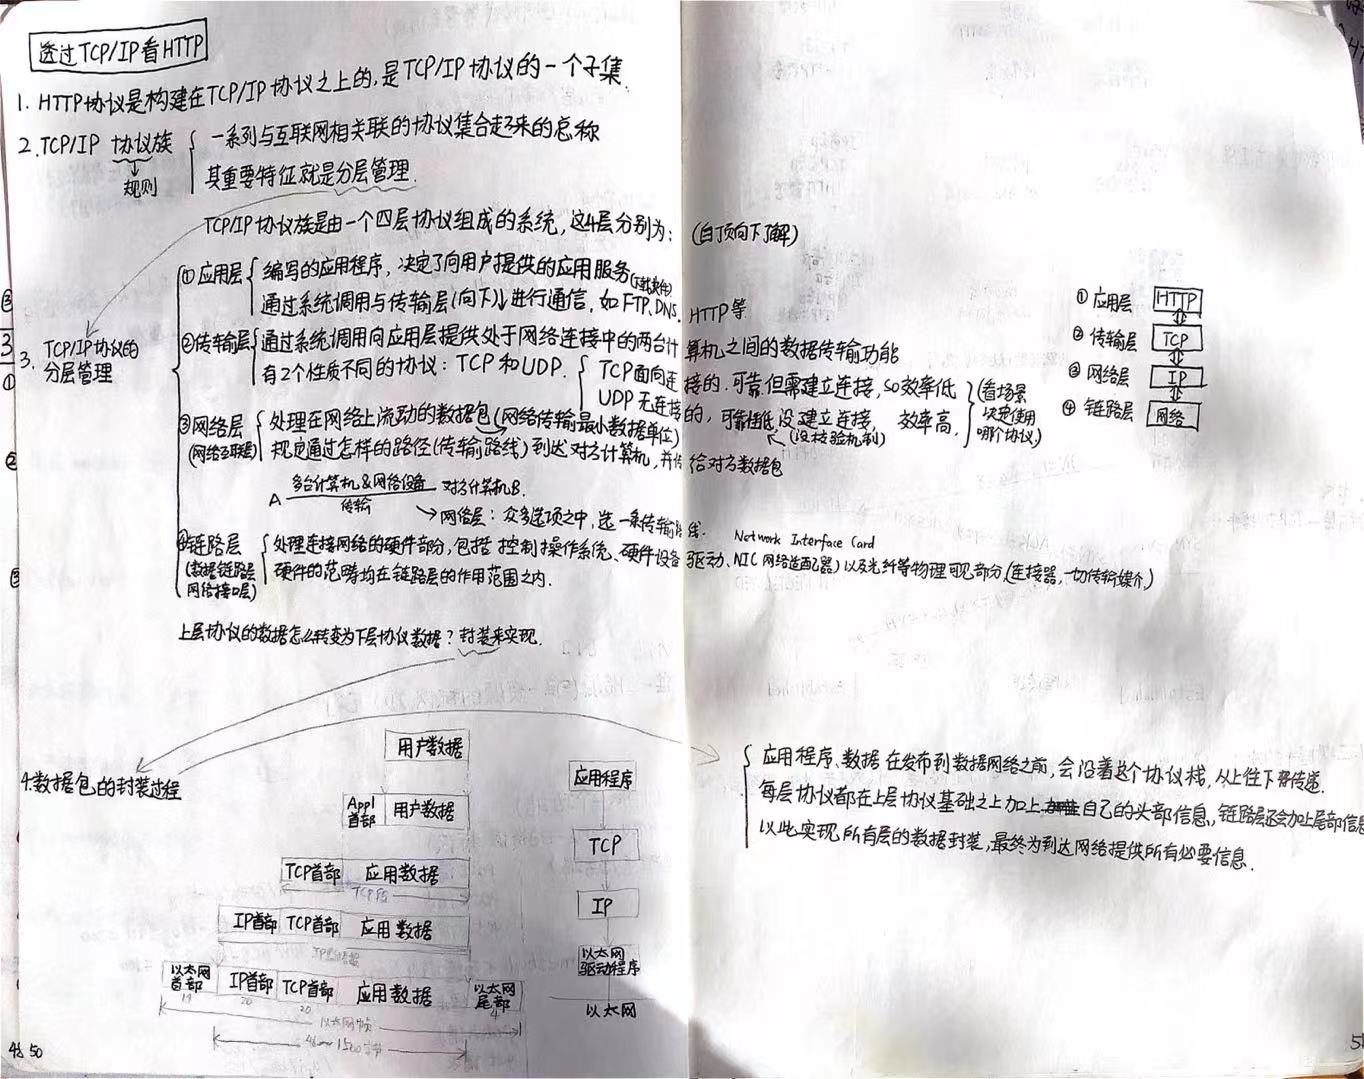 透过TCP/IP看HTTP
1. HTTP协议是构建在TCP/IP协议之上的,是TCP/IP协议的一个子集.
2. TCP/IP 协议族
规则
一系列与互联网相关联的协议集合起来的总称
其重要特征就是分层管理.
TCP/IP协议族是由一个四层协议组成的系统,这4层分别为: (自顶向下了解)
3. TCP/IP协议的
分层管理
①应用层
编写的应用程序,决定了向用户提供的应用服务(下载文件)
通过系统调用与传输层(向下)进行通信,如FTP.DNS. HTTP等
②传输层
通过系统调用向应用层提供处于网络连接中的两台计算机之间的数据传输功能
有2个性质不同的协议: TCP和UDP.
TCP面向连接的.可靠但需建立连接,so效率低
UDP无连接的,可靠性低,没建立连接, 效率高.
(没校验机制)
(看场景
决定使用
哪个协议)
③网络层
(网络互联层)
处理在网络上流动的数据包(网络传输最小数据单位)
规定通过怎样的路径(传输路线)到达对方计算机,并传给对方数据包
A 多台计算机&网络设备 对方计算机B.
传输
→网络层: 众多选项之中,选一条传输路线.
④链路层
(数据链路层
网络接口层)
Network Interface Card
处理连接网络的硬件部分,包括控制操作系统、硬件设备驱动、NIC网络适配器)以及光纤等物理可见部分(连接器,一切传输媒介)
硬件的范畴均在链路层的作用范围之内.
① 应用层 HTTP
② 传输层 TCP
③ 网络层 IP
④ 链路层 网络
上层协议的数据怎么转变为下层协议数据? 封装来实现.
4.数据包的封装过程
用户数据
Appl
首部
用户数据
TCP首部 应用数据
TCP段
IP首部 TCP首部 应用数据
IP数据报
以太网
首部
IP首部 TCP首部 应用数据
以太网
尾部
14 20 20 4
以太网帧
46~1500字节
应用程序
TCP
IP
以太网
驱动程序
以太网
应用程序、数据在发布到数据网络之前,会沿着这个协议栈,从上往下传递.
每层协议都在上层协议基础之上加上自己的头部信息,链路层还会加上尾部信息
以此实现所有层的数据封装,最终为到达网络提供所有必要信息.
50